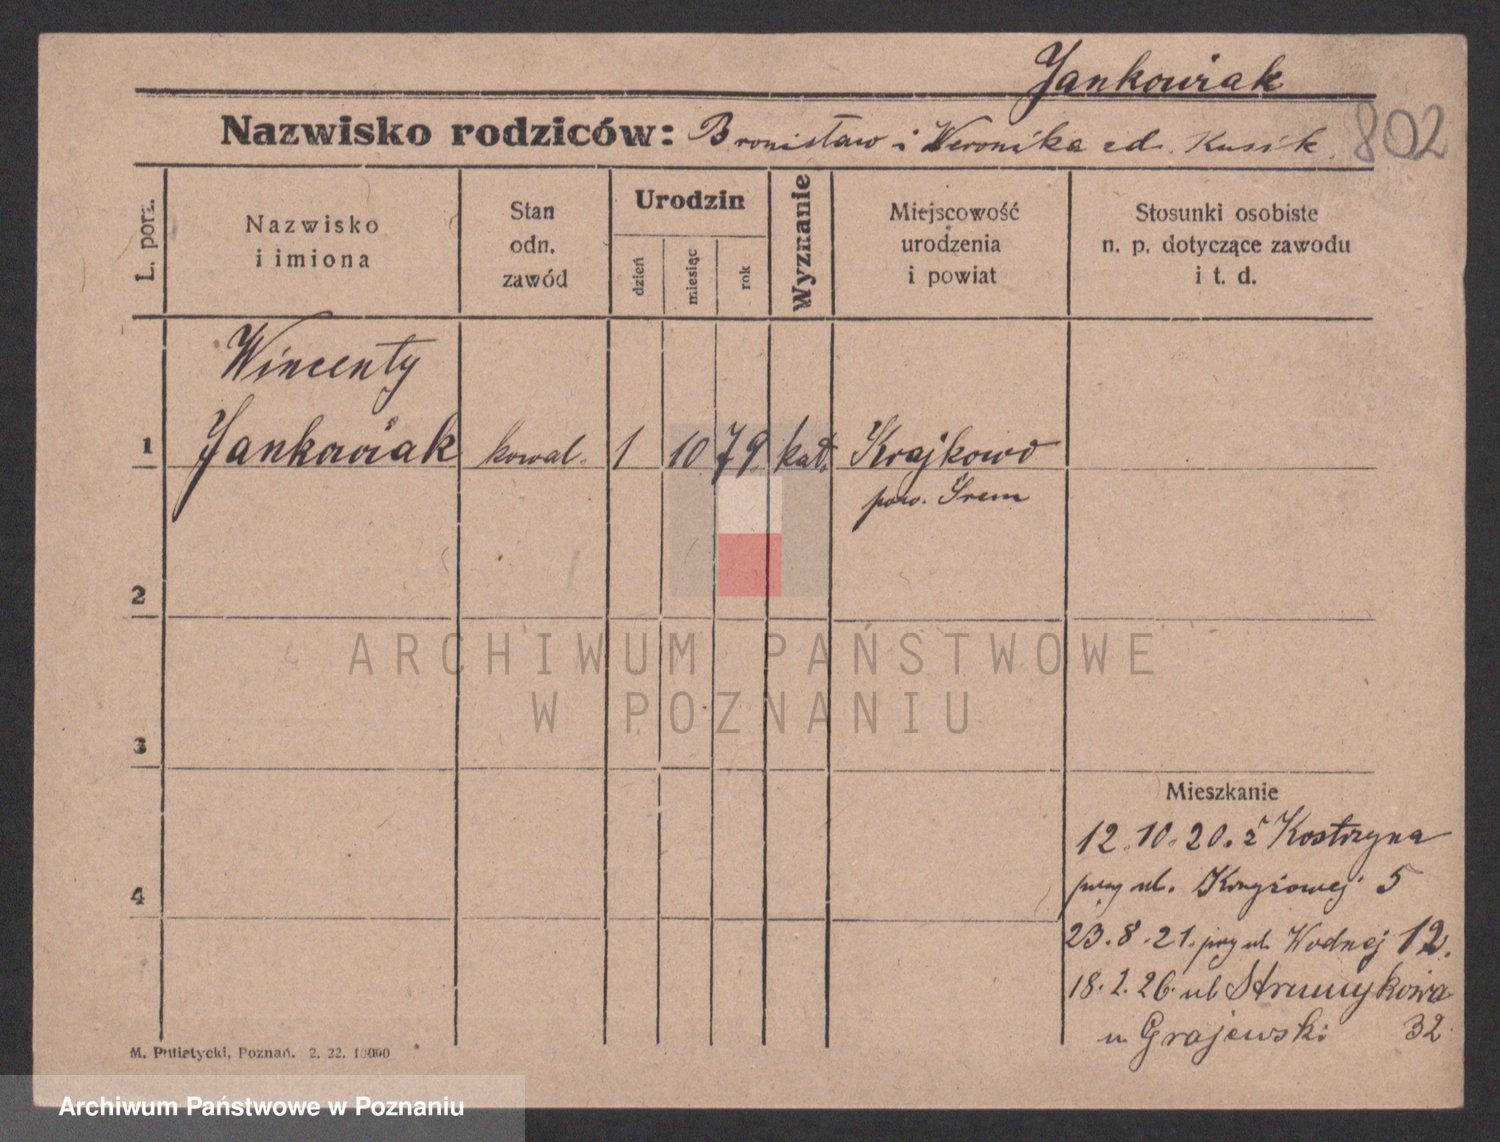 Jankowiak
Nazwisko rodziców: Bronisław i Weronika zd. Kusik.
802
L. porz.
Nazwisko
i imiona
Stan
odn.
zawód
Urodzin
dzień
miesiąc
rok
Wyznanie
Miejscowość
urodzenia
i powiat
Stosunki osobiste
n. p. dotyczące zawodu
i t. d.
Wincenty
1 Jankowiak kowal. 1 10 79. kat. Krajkowo
pow. Śrem
2
3
Mieszkanie
12.10.20. z Kostrzyna
przy ul. Krzyżowej 5
4
23.8.21. przy ul. Wodnej 12.
18.2.26. ul Strumykowa
u Grajewski 32
M. Putiatycki, Poznań. 2. 22. 10000
ARCHIWUM PAŃSTWOWE
W POZNANIU
Archiwum Państwowe w Poznaniu